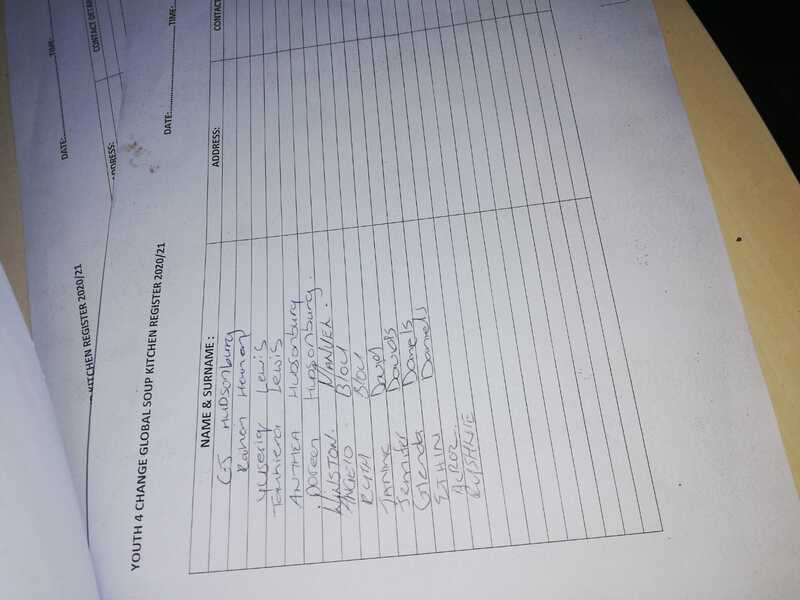 KITCHEN REGISTER 2020/21
DATE:..........TIME:
ADDRESS:
CONTACT DETAI
YOUTH 4 CHANGE GLOBAL SOUP KITCHEN REGISTER 2020/21
DATE:..........TIME:
NAME & SURNAME : ADDRESS: CONTAC
CJ HUDSONBURG
Lewis
Lewis
ANTHEA HUDSONBURG
Doreen HUDSONBURG.
WINSTON. MANUEL.
ANGELO Blou
RUTH Blou
Janine Davids
Jennifer Davids
Glenda Daniels
Daniels